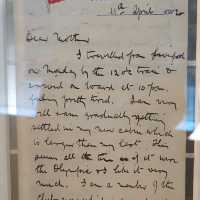 11th April 1912
Dear Mother
I travelled from Liverpool
on Monday by the 12 o'c train &
arrived on board at 10 p.m.
feeling pretty tired. I am very
well & am gradually getting
settled in my new cabin which
is larger than my last. This
seems all the time as if it were
the Olympic & I like it very
much. I am a member of the